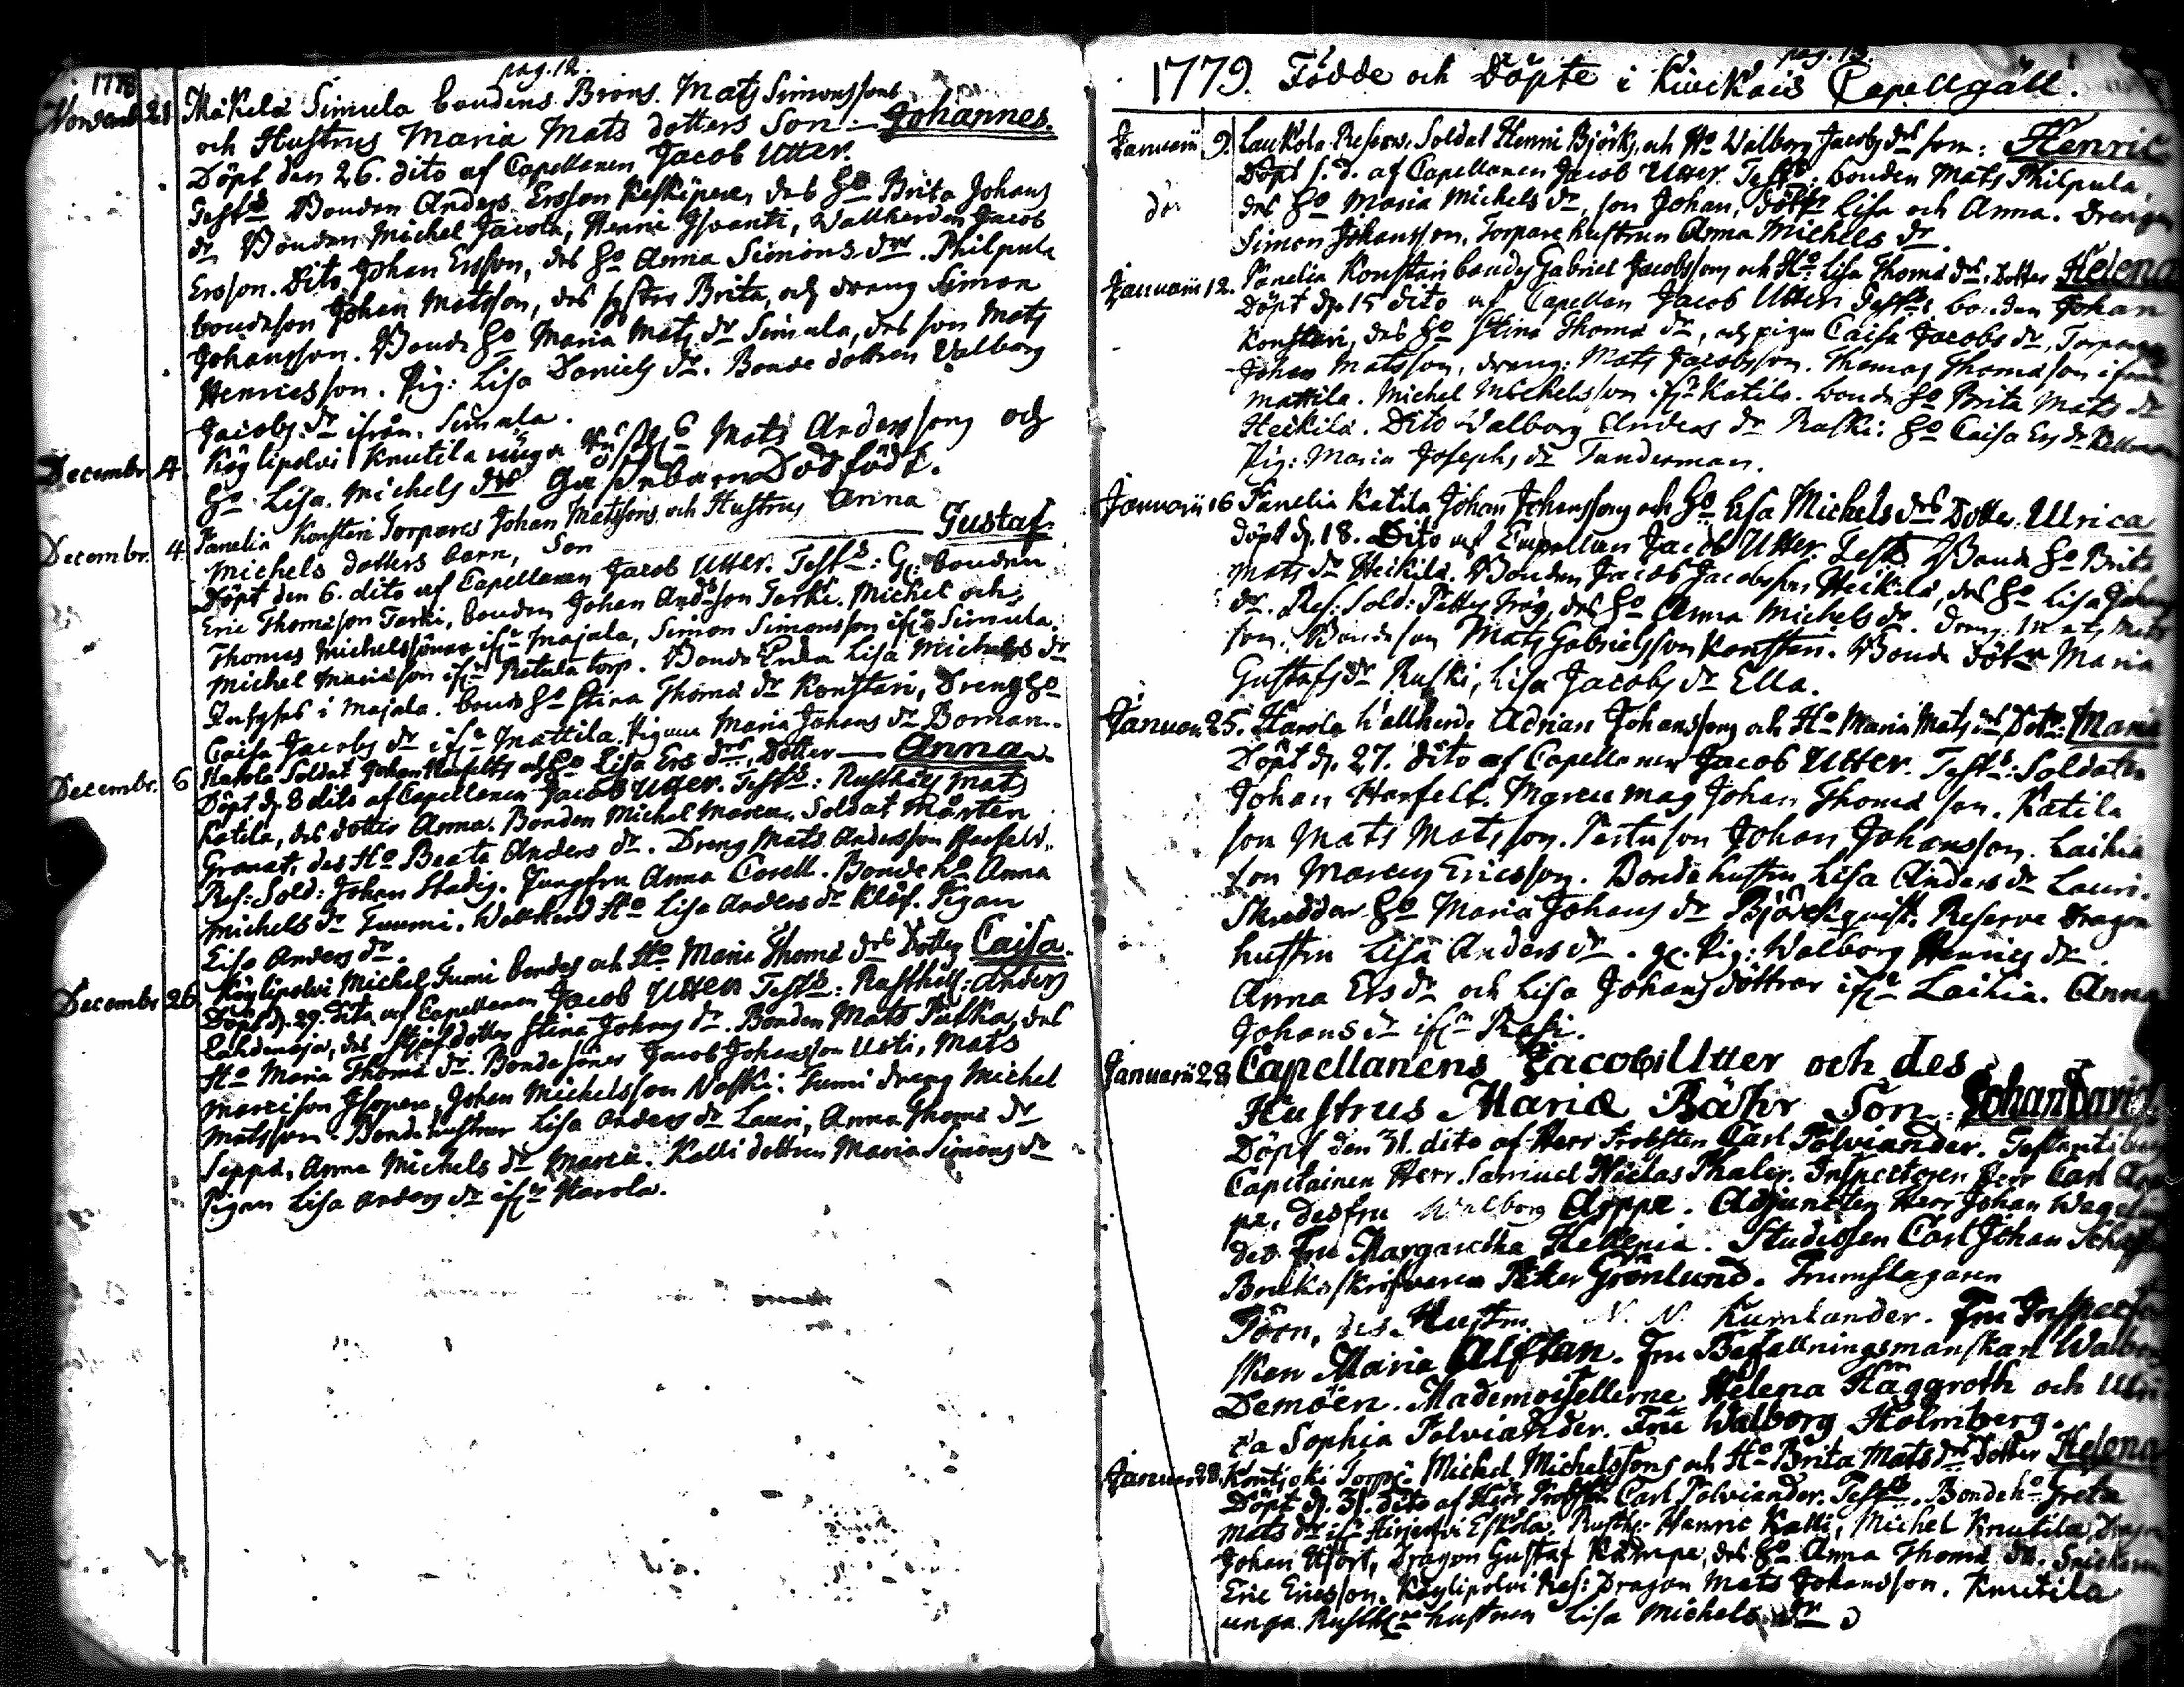 pag. 12.
1778
Novemb. 21 Mäkelä Simula bondens Brors. Mats Simonssons
och Hustrus Maria Mats dotters Son. Johannes.
Döpt den 26. dito af Capellanen Jacob Utter.
Test: Bonden Anders Ersson des Ho Brita Johans
dr Bonden Michel Jacola, Henric Wallherden Jacob
Ersson. Dito Johan Ersson, des Ho Anna Simons dr. Philpula
bondeson Johan Matsson, des syster Brita, och dreng Simon
Johansson. Bonde Ho Maria Mats dr Simula, des son Mats
Henricsson. Pig: Lisa Daniels dr. Bonde dottren Valborg
Jacobs dr ifrån Simula.
Decembr. 4. Köylipolvi Knutila unga Mats Anderssons och
Ho Lisa Michels drs Gåssebarn Dödfödt.
Decembr. 4 Panelia Konsteri Torpares Johan Matssons och Hustrus Anna
Michels dotters barn, Son Gustaf.
Döpt den 6. dito af Capellanen Jacob Utter. Test: G: bonden
Eric Thomasson Tarki, bonden Johan Andsson Tarki. Michel och
Thomas Michelssöner ifrn Majala, Simon Simonsson ifrn Simula.
Michel Mariason ifrn Retula torp. Bonde Enka Lisa Michels dr
Inhyses i Majala. bonde Ho Stina Thoma dr Konsteri, Dreng Ho
Caisa Jacobs dr ifrn Mattila. Pigan Maria Johans dr Boman.
Decembr. 6 Harola Soldat Johan Harfelts och Ho Lisa Ers drs, Dotter Anna
Döpt d. 8 dito af Capellanen Jacob Utter. Test: Rusthåll Mats
Katila, des dotter Anna. Bonden Michel Marcu. Soldat Mårten
Granat, des Ho Beata Anders dr. Dreng Mats Andersson Harfeld.
Res: Sold: Johan Stadig. Jungfru Anna Corell. Bonde Ho Anna
Michels dr Tuumi. Wallherd Ho Lisa Anders dr Klöf. Pigan
Lisa Anders dr.
Decembr. 26 Köylipolvi Michel Tumi bondes och Ho Maria Thoma drs Dotter Caisa.
Döpt d. 29. Dito af Capellanen Jacob Utter Test: Rusthåll: Anders
Lähdenoja, des Stjufdotter Stina Johans dr. Bonden Mats Putka, des
Ho Maria Thoma dr. Bonde söner Jacob Johansson Uoti, Mats
Marcison Isopere, Johan Michelsson Naski. Tumi dreng Michel
Matsson. Bonde hustrur Lisa Anders dr Lauri, Anna Thoma dr
Seppä, Anna Michels dr Marcu. Kalli dottren Maria Simons dr
Pigan Lisa Anders dr ifrn Harola.
pag. 13.
1779. Födde och Döpte i Kiuckais Capellgäll.
Januarii 9. Laukola Reserv. Soldat Henric Björks, och Ho Walborg Jacobs drs son: Henric
Döpt s. d. af Capellanen Jacob Utter. Test: bonden Mats Philpula,
des Ho Maria Michels dr, son Johan, döttr Lisa och Anna. Drengen
Simon Johansson, Torpare hustrun Anna Michels dr.
Januarii 12. Panelia Konstari bondes Gabriel Jacobssons och Ho Lisa Thoma drs, Dotter Helena
Döpt d. 15 dito af Capellan Jacob Utter Test: bonden Johan
Konstari, des Ho Stina Thoma dr, och pigan Caisa Jacobs dr, Torparen
Johan Matsson, dreng: Mats Jacobsson. Thomas Thomasson ifrån
Mattila. Michel Michelsson ifrn Katila. bonde Ho Brita Mats dr
Heikilä. Dito Walborg Anders dr Raski: Ho Caisa Ers dr
Pig: Maria Josephs dr Tunderman.
Januarii 16 Panelia Katila Johan Johanssons och Ho Lisa Michels drs Dotter. Ulrica
Döpt d. 18. Dito af Capellan Jacob Utter. Test: Bonde Ho Brita
Mats dr Heikilä. Bonden Jacob Jacobsson Heikilä, des Ho Lisa Johans
dr. Res: Sold: Petter Frög, des Ho Anna Michels dr. Dreng Mats Mats
son. Bondeson Mats Gabrielsson Konstari. Bonde Dötr Maria
Gustafs dr Ruski, Lisa Jacobs dr Ella.
Januari 25. Harola Wallherde Adrian Johanssons och Ho Maria Mats drs Dotr: Maria
Döpt d. 27. dito af Capellanen Jacob Utter. Test: Soldaten
Johan Harfelt. Marcu mag Johan Thoma son. Katila
son Mats Matsson. Perttu son Johan Johansson. Laihia
son Marcus Ericsson. Bonde hustru Lisa Anders dr Lauri.
Skreddar Ho Maria Johans dr Björkqvist. Reserve Dragon
hustru Lisa Anders dr. g. Pig: Walborg Henrics dr.
Anna Ers dr och Lisa Johans döttrar ifrn Laihia. Anna
Johans dr ifrn Rasi.
Januarii 28. Capellanens Jacobi Utter och des
Hustrus Mariæ Bähr Son. Johan David
Döpt den 31. dito af Herr Probsten Carl Polviander. Testantibus
Capitainen Herr Samuel Niclas Thaler. Inspectoren Herr Carl Arp
pe, des fru Walborg Arppe. Adjuncten Herr Johan
des Fru Margaretha Hellenia. Studiosen Carl Johan
Bruksskrifvaren Petter Grönlund. Trumslagaren
Pöön, des Hustru N. N. Kumlander. Fru Inspector
skan Maria Alftan. Fru Befallningsmanskan Walborg
Demöen. Mademoisellerne Helena Häggroth och Ulri
ca Sophia Polviander. Fru Walborg Holmberg.
Januar 28. Kontjoki Torp: Michel Michelssons och Ho Brita Mats drs Dotter Helena
Döpt d. 31. dito af Herr Probsten Carl Polviander. Test. Bonde ho Greta
Mats dr ifrn Eskola. Rusth: Henric Kalli, Michel Knutila, Dragon
Johan Hjort, Dragon Gustaf Kämpe, des Ho Anna Thoma dr. Snickaren
Eric Ericsson. Köylipolvi Res: Dragon Mats Johansson. Knutila
unga Rusthns hustrun Lisa Michels dr